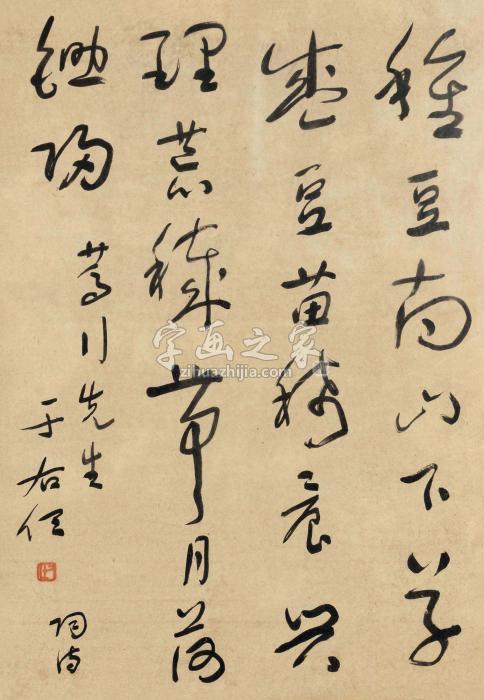 種豆南山下草
盛豆苗稀晨興
理荒穢帶月荷
鋤歸
川先生
于右任
陶詩
字画之家
zihuazhijia.com